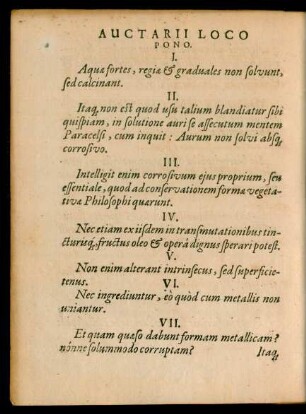 AUCTARII LOCO
PONO.
I.
Aquæ fortes, regiæ & graduales non solvunt,
sed calcinant.
II.
Itaq; non est quod usu talium blandiatur sibi
quispiam, in solutione auri se assecutum mentem
Paracelsi, cum inquit: Aurum non solvi absq;
corrosivo.
III.
Intelligit enim corrosivum ejus proprium, seu
essentiale, quod ad conservationem formæ vegeta-
tivæ Philosophi quærunt.
IV.
Nec etiam ex iisdem in transmutationibus tin-
cturisq; fructus oleo & operâ dignus sperari potest.
V.
Non enim alterant intrinsecus, sed superficie-
tenus.
VI.
Nec ingrediuntur, eò quòd cum metallis non
uniantur.
VII.
Et quam quæso dabunt formam metallicam?
nónne solummodo corruptam?
Itaq;